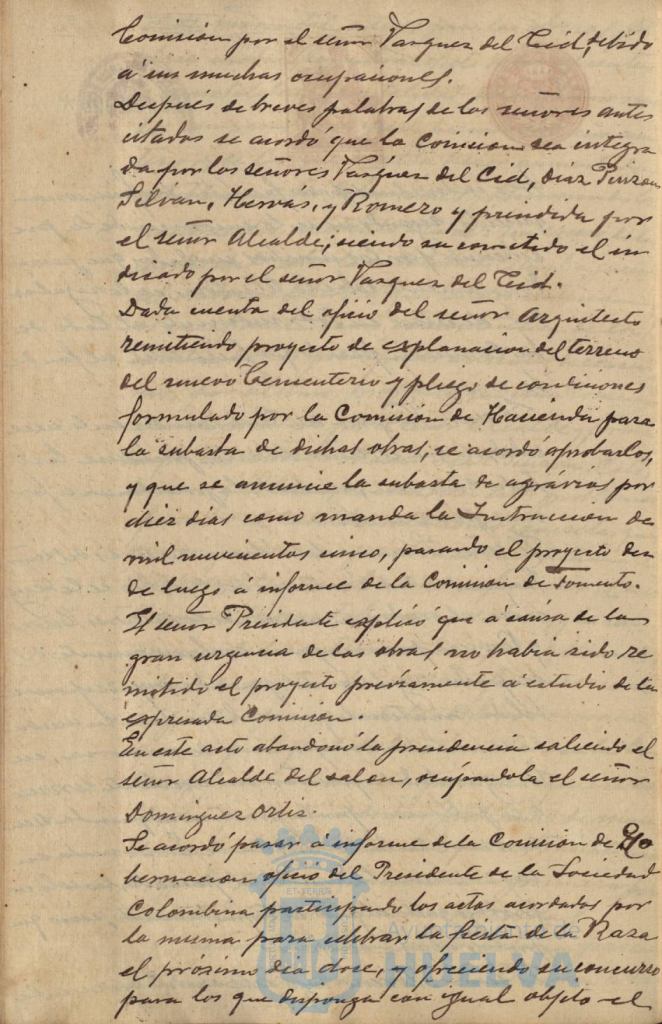 Comisión por el señor Vazquez del Cid, debido
á sus muchas ocupaciones.
Después de breves palabras de los señores antes
citados se acordó que la Comision sea integra
da por los señores Vazquez del Cid, Diaz Pinzon
Silván, Hervás, y Romero y presidida por
el señor Alcalde; siendo su cometido el in
dicado por el señor Vazquez del Cid.
Dada cuenta del oficio del señor Arquitecto
remitiendo proyecto de explanacion del terreno
del nuevo Cementerio y pliego de condiciones
formulado por la Comisión de Hacienda para
la subasta de dichas obras, se acordó aprobarlos,
y que se anuncie la subasta de agrávios por
diez dias como manda la Instruccion de
mil nuevecientos cinco, pasando el proyecto des
de luego á informe de la Comision de Fomento.
El señor Presidente explicó que á causa de la
gran urgencia de las obras no habia sido re
mitido el proyecto previamente á estudio de la
expresada Comisión.
En este acto abandonó la presidencia saliendo el
señor Alcalde del salon, ocupándola el señor
Dominguez Ortiz.
Se acordó pasar á informe de la Comisión de Go
bernacion oficio del Presidente de la Sociedad
Colombina participando los actos acordados por
la misma para celebrar la fiesta de la Raza
el próximo dia doce, y ofreciendo su concurso
para los que disponga con igual objeto el
HUELVA